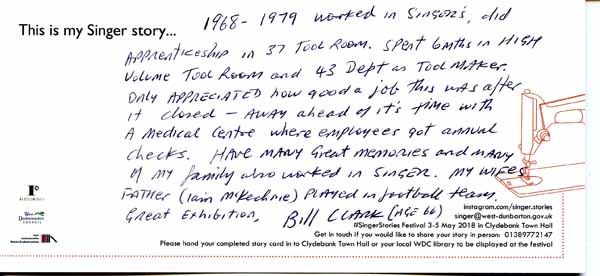 This is my Singer story...
1968 - 1979 worked in SINGER'S, did
APPRENTICESHIP in 37 TOOL ROOM. SPENT 6 mths in HIGH
VOLUME TOOL ROOM and 43 DEPT as TOOL MAKER.
ONLY APPRECIATED how good a job this was after
it closed - AWAY ahead of it's time with
A Medical Centre where employees got annual
checks. HAVE MANY Great memories and MANY
of my family also worked in SINGER. MY WIFES
FATHER (Iain McKechnie) PLAYED in football team.
Great Exhibition, Bill CLARK (AGE 66)
West Dunbartonshire COUNCIL
instagram.com/singer.stories
singer@west-dunbarton.gov.uk
#SingerStories Festival 3-5 May 2018 in Clydebank Town Hall
Get in touch if you would like to share your story in person: 01389772147
Please hand your completed story card in to Clydebank Town Hall or your local WDC library to be displayed at the festival